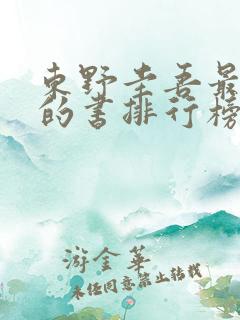 东野圭吾最
的书排行榜
游金华
未经同意禁止转载